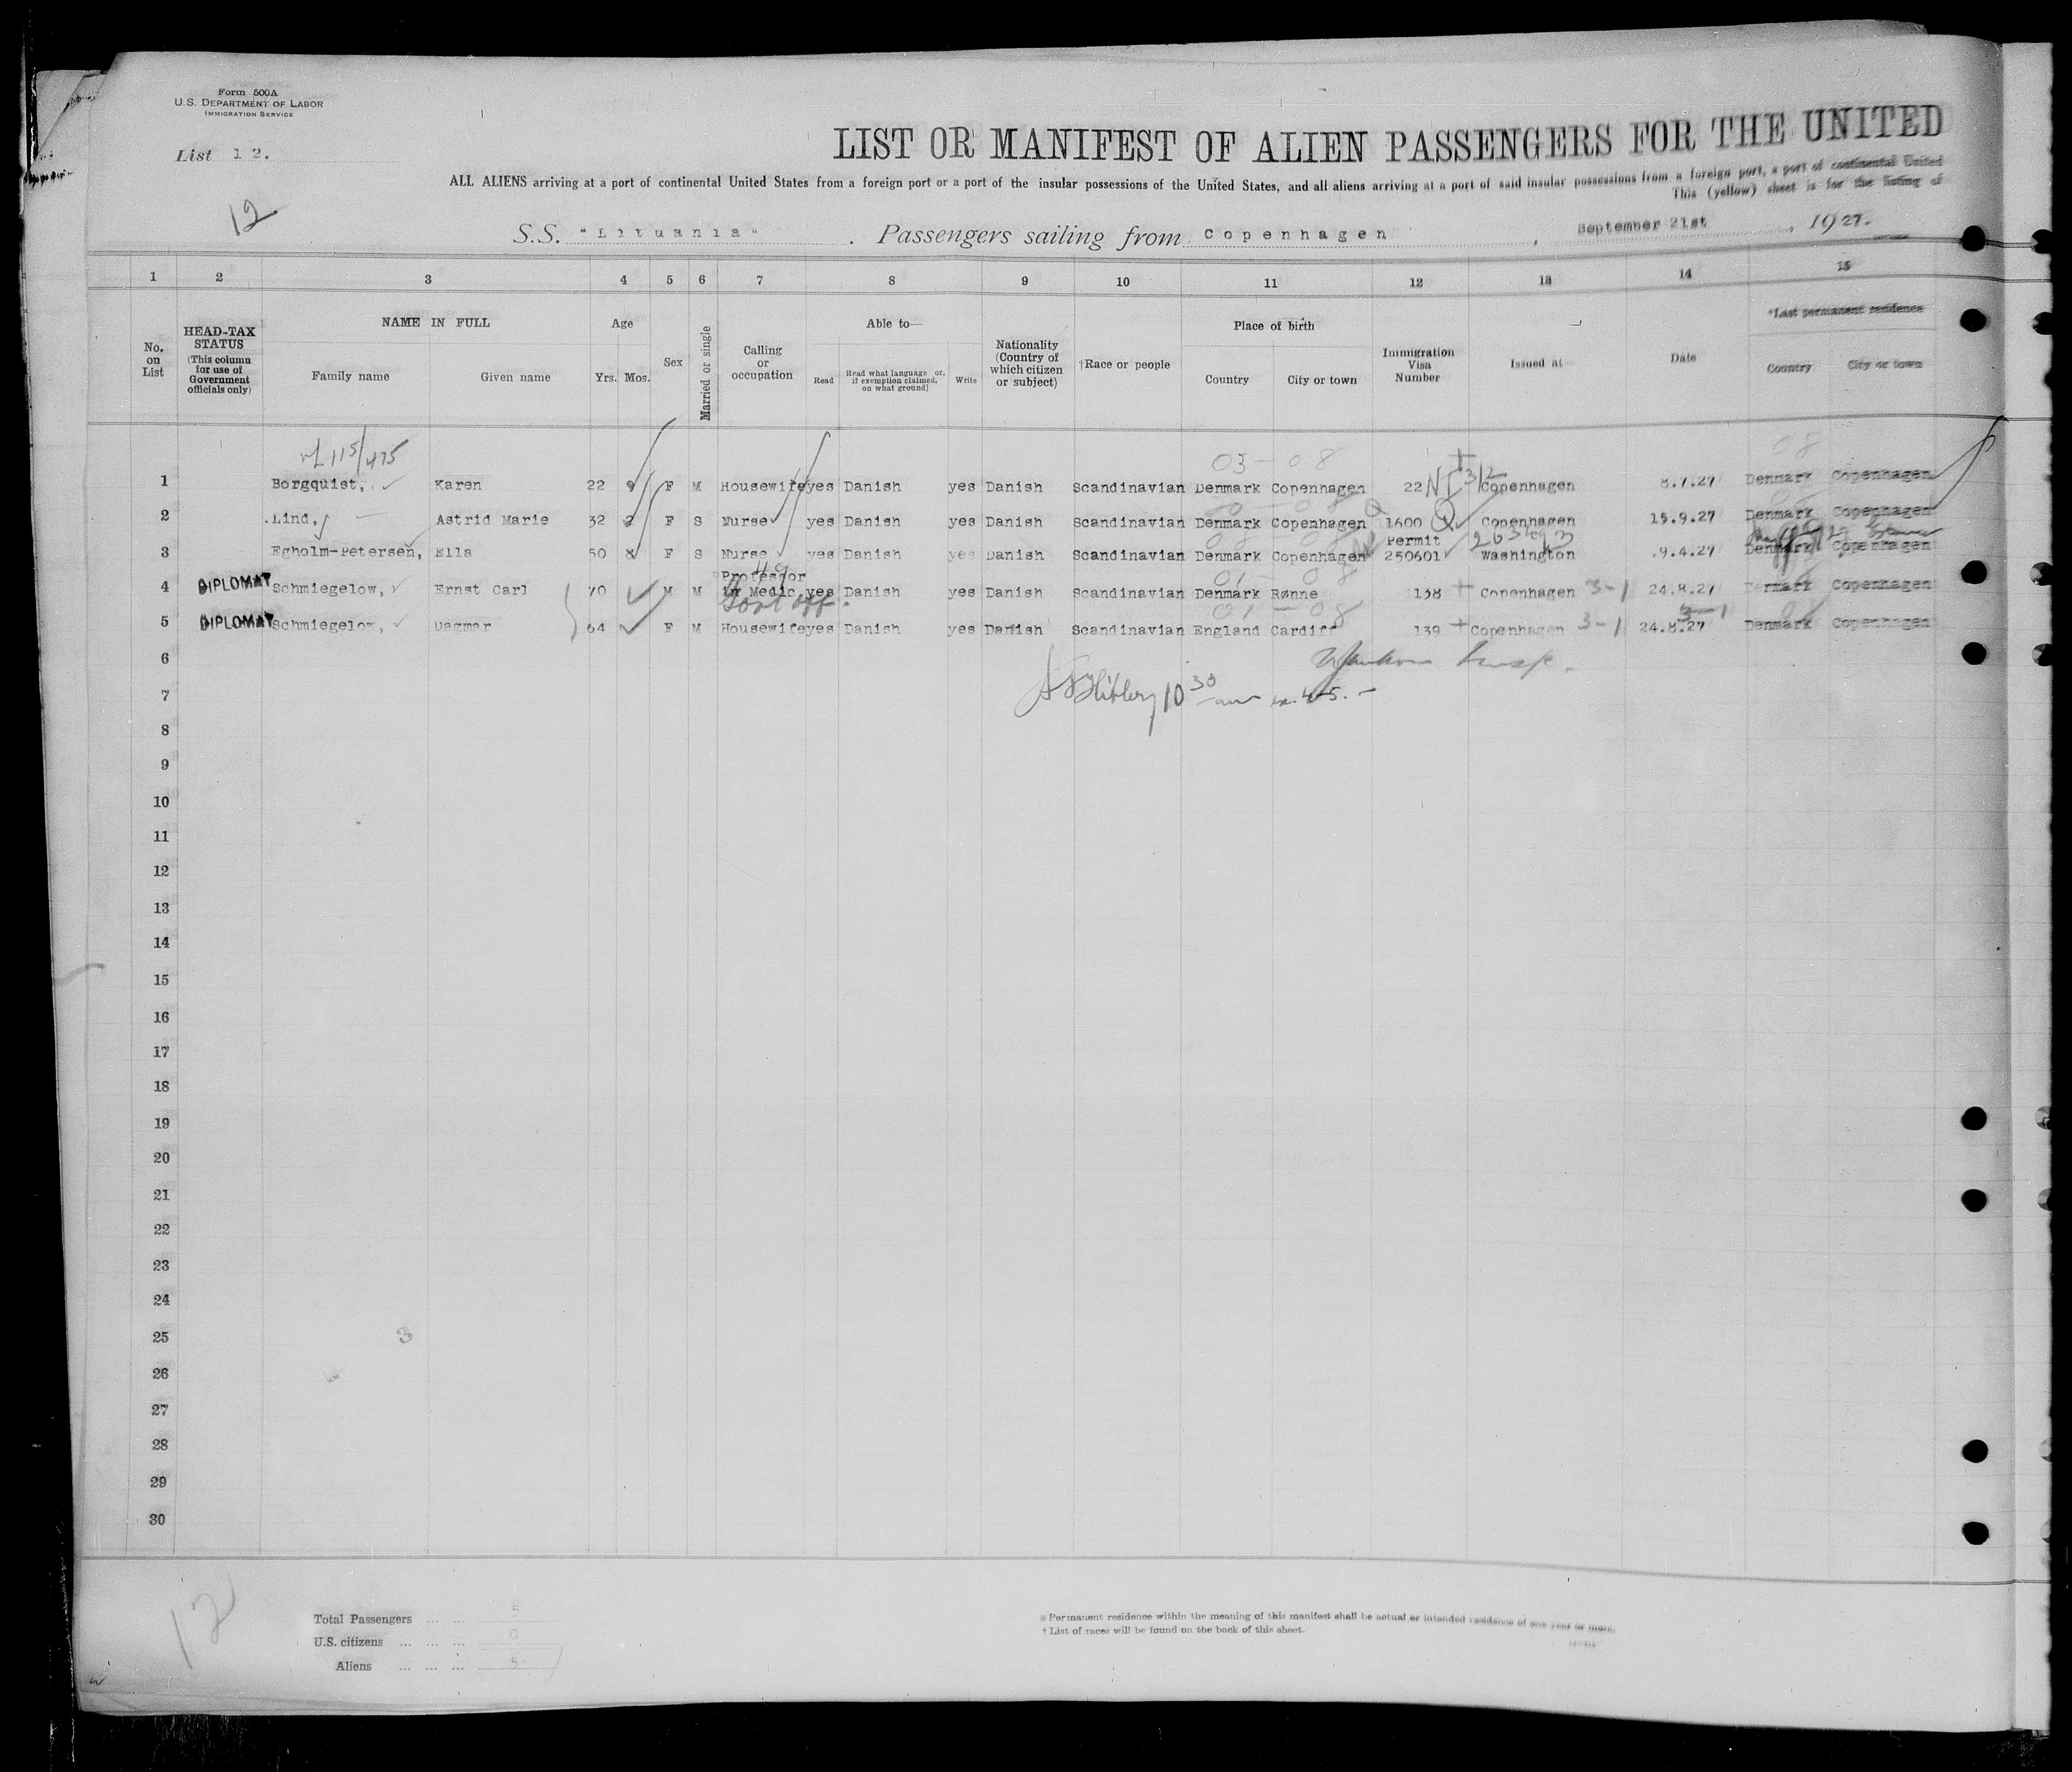 Form 500A
U.S. DEPARTMENT OF LABOR
IMMIGRATION SERVICE
List 12.
12
LIST OR MANIFEST OF ALIEN PASSENGERS FOR THE UNITED
ALL ALIENS arriving at a port of continental United States from a foreign port or a port of the insular possessions of the United States, and all aliens arriving at a port of said insular possessions from a foreign port, a port of continental United
This (yellow) sheet is for the listing of
S.S. "Lituania". Passengers sailing from Copenhagen, September 21st, 1927.
1 2 3 4 5 6 7 8 9 10 11 12 13 14 15
No. on List
HEAD-TAX STATUS (This column for use of Government officials only)
NAME IN FULL
Family name Given name
Age
Yrs. Mos.
Sex
Married or single
Calling or occupation
Able to—
Read
Read what language or, if exemption claimed, on what ground]
Write
Nationality (Country of which citizen or subject)
†Race or people
Place of birth
Country City or town
Immigration Visa Number
Issued at
Date
*Last permanent residence
Country City or town
115/475 03 - 08 08
1 Borgquist, Karen 22 9 F M Housewife yes Danish yes Danish Scandinavian Denmark Copenhagen 22 NI 3/2 Copenhagen 8.7.27 Denmark Copenhagen
2 Lind, Astrid Marie 32 2 F S Nurse yes Danish yes Danish Scandinavian Denmark Copenhagen 1600 Q Copenhagen 15.9.27 Denmark Copenhagen
3 Egholm-Petersen, Ella 50 8 F S Nurse yes Danish yes Danish Scandinavian Denmark Copenhagen Permit 250601 Washington 9.4.27 Denmark Copenhagen
4 DIPLOMAT Schmiegelow, Ernst Carl 70 M M Professor in Medic. yes Danish yes Danish Scandinavian Denmark Rønne 138 Copenhagen 3-1 24.8.27 Denmark Copenhagen
Govt off.
01 - 08
5 DIPLOMAT Schmiegelow, Dagmar 64 F M Housewife yes Danish yes Danish Scandinavian England Cardiff 139 Copenhagen 3-1 24.8.27 Denmark Copenhagen
6
7 10 30 4-5.
8
9
10
11
12
13
14
15
16
17
18
19
20
21
22
23
24
25 3
26
27
28
29
30
12
Total Passengers ... ... 5
U.S. citizens ... ... ... 0
Aliens ... ... ... 5
*Permanent residence within the meaning of this manifest shall be actual or intended residence of one year or more.
†List of races will be found on the back of this sheet.